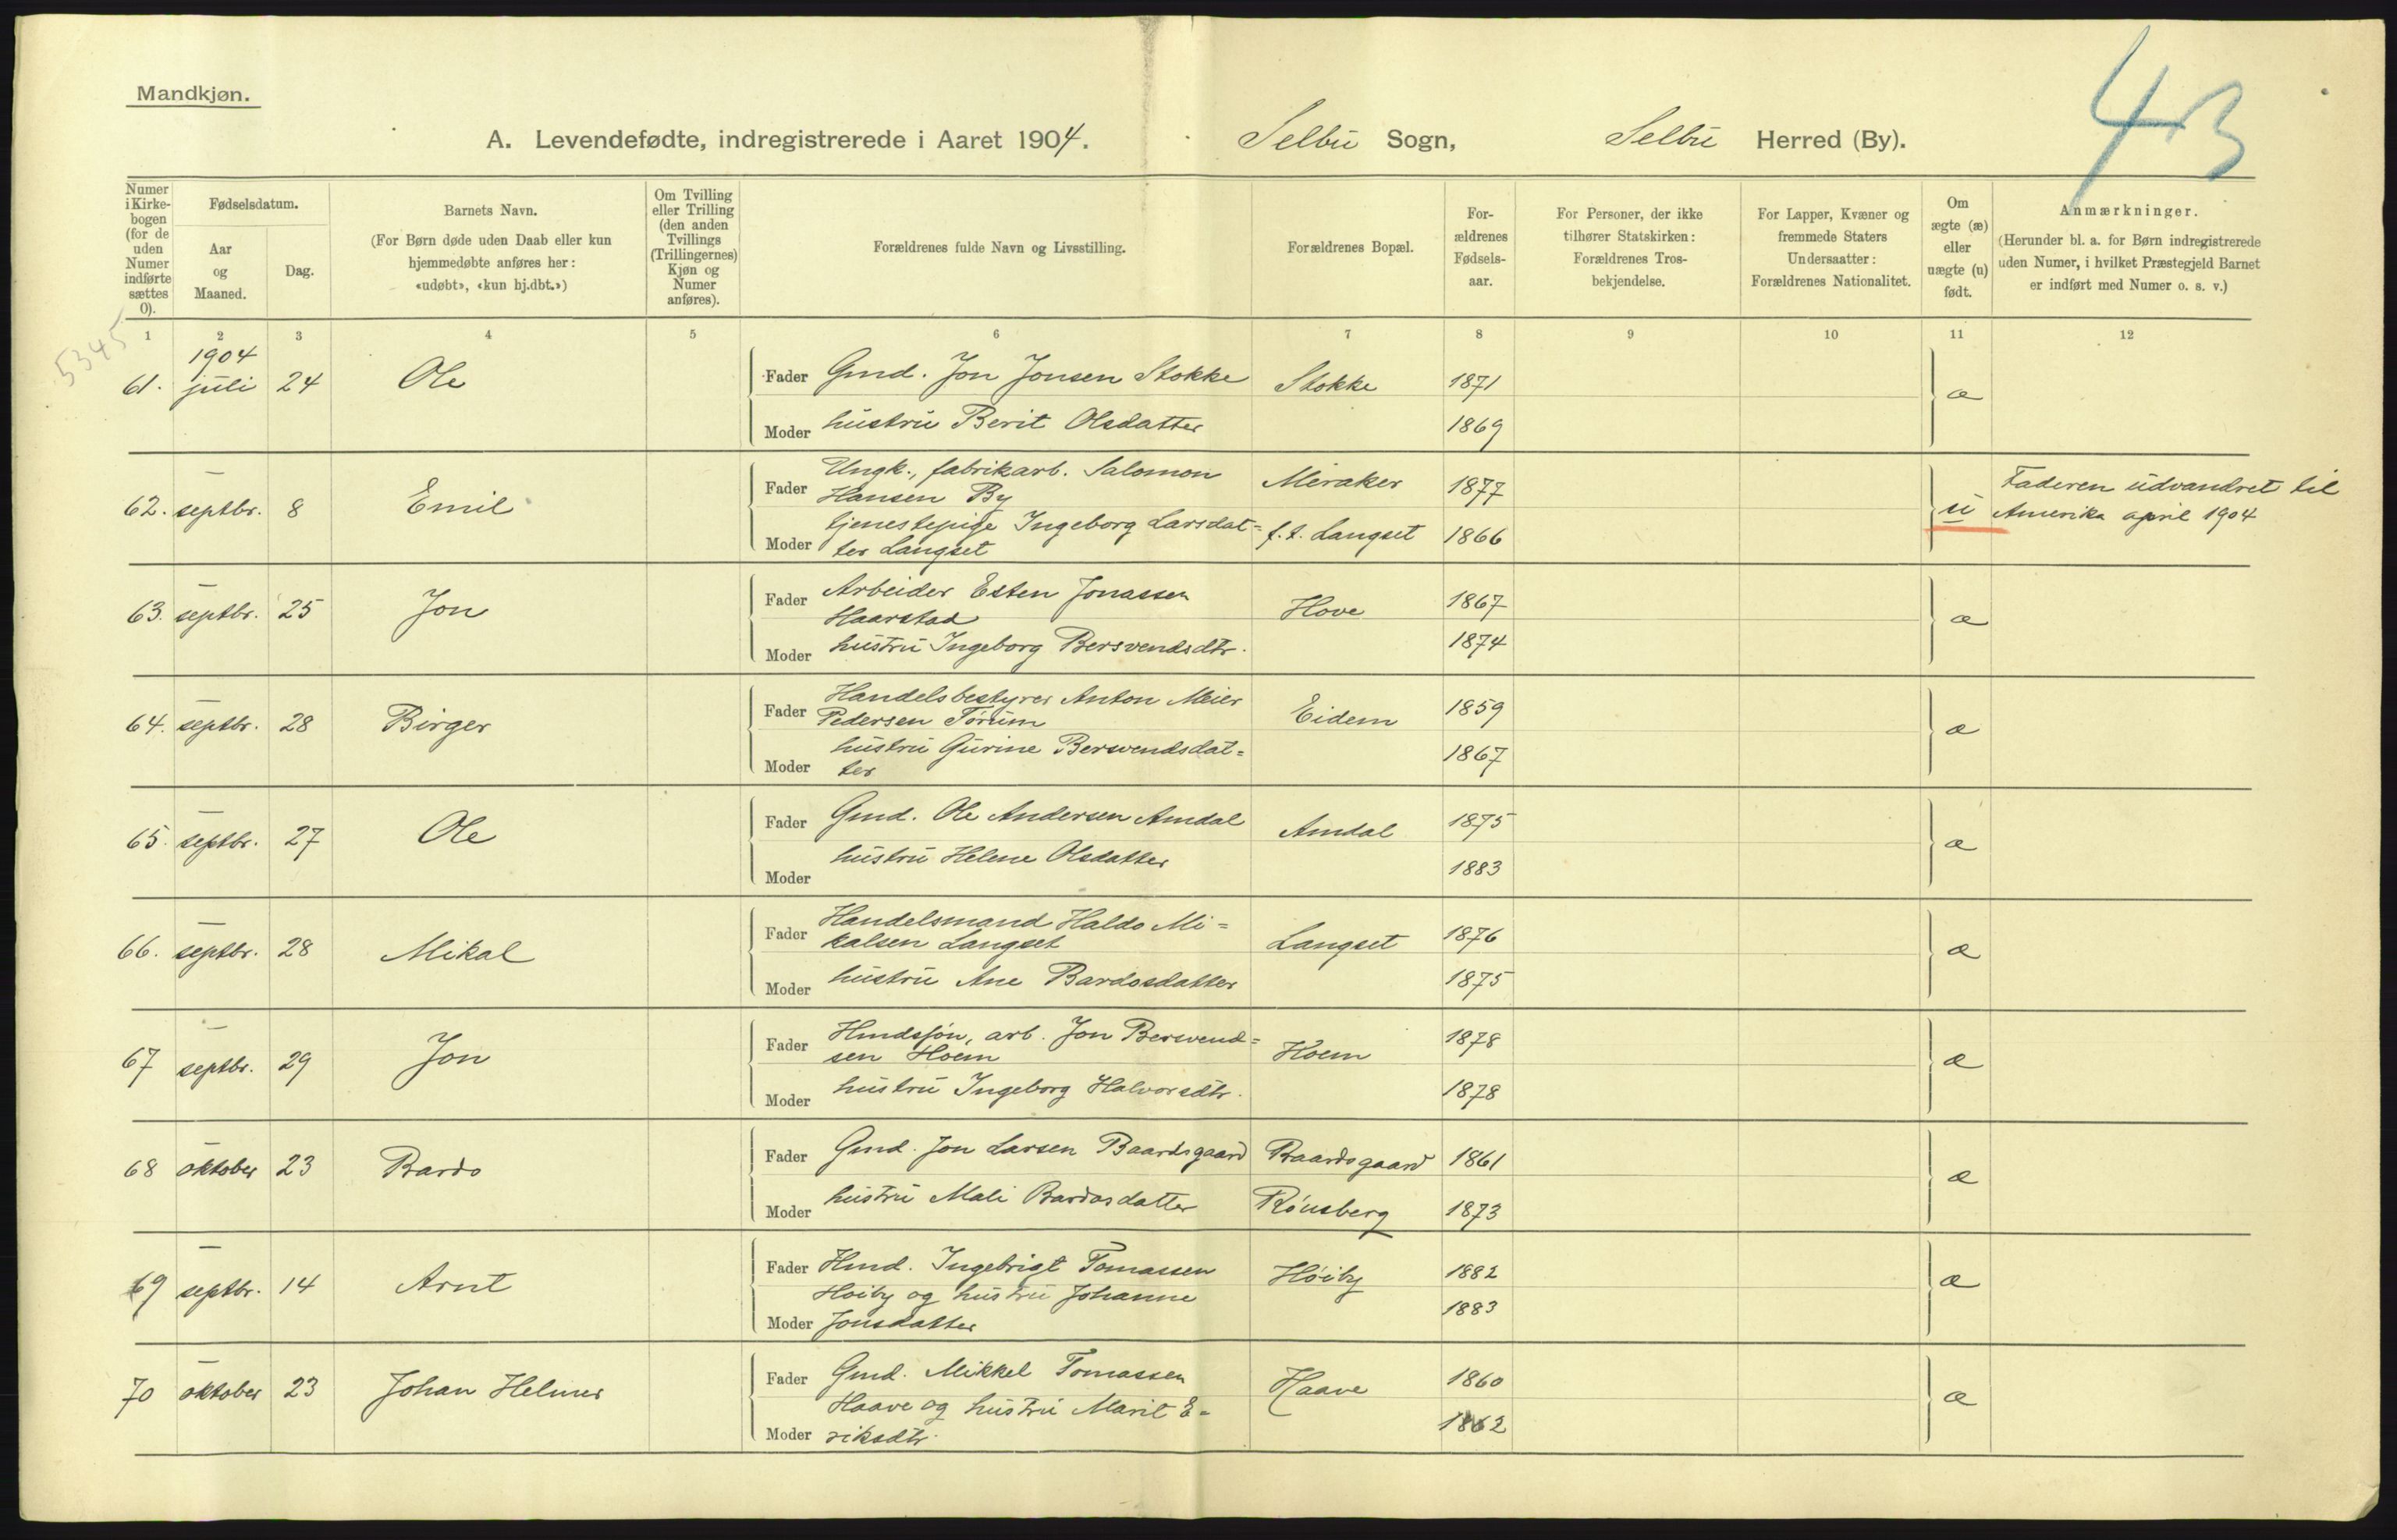 Mandkjøn.
43
A. Levendefødte, indregistrerede i Aaret 1904. Selbu Sogn, Selbu Herred (By).
Numer i Kirke-bogen (for de uden Numer indførte sættes 0).
Fødselsdatum.
Aar og Maaned.
Dag.
Barnets Navn.
(For Børn døde uden Daab eller kun hjemmedøbte anføres her: «udøbt», «kun hj.dbt.»)
Om Tvilling eller Trilling (den anden Tvillings (Trillingernes) Kjøn og Numer anføres).
Forældrenes fulde Navn og Livsstilling.
Forældrenes Bopæl.
For-ældrenes Fødsels-aar.
For Personer, der ikke tilhører Statskirken: Forældrenes Tros-bekjendelse.
For Lapper, Kvæner og fremmede Staters Undersaatter: Forældrenes Nationalitet.
Om ægte (æ) eller uægte (u) født.
Anmærkninger.
(Herunder bl. a. for Børn indregistrerede uden Numer, i hvilket Præstegjeld Barnet er indført med Numer o. s. v.)
1 2 3 4 5 6 7 8 9 10 11 12
5345
1904
61. juli 24 Ole Fader Gmd. Jon Jonsen Stokke Stokke 1871 æ
Moder hustru Berit Olsdatter 1869
62. – septbr. 8 Emil Fader Ungk., fabrikarb. Salomon Meraker 1877 u Faderen udvandret til
Hansen By Amerika april 1904
Moder tjenestepige Ingeborg Larsdat= f.t. Langset 1866
ter Langset
63. – septbr. 25 Jon Fader Arbeider Esten Jonassen Hove 1867 æ
Haarstad
Moder hustru Ingeborg Bersvendsdtr. 1874
64. – septbr. 28 Birger Fader Handelsbestyrer Anton Meier Eidem 1859 æ
Pedersen Törum
Moder hustru Gurine Bersvendsdat= 1867
ter
65. – septbr. 27 Ole Fader Gmd. Ole Andersen Amdal Amdal 1875 æ
Moder hustru Helene Olsdatter 1883
66. – septbr. 28 Mikal Fader Handelsmand Haldo Mi= Langset 1876 æ
kalsen Langset
Moder hustru Ane Bardosdatter 1875
67 – septbr. 29 Jon Fader Hmdssön, arb. Jon Bersvend= Hoem 1878 æ
sen Hoem
Moder hustru Ingeborg Halvorsdtr. 1878
68 – oktober 23 Bardo Fader Gmd. Jon Larsen Baardsgaard Baardsgaard 1861 æ
Moder hustru Mali Bardosdatter Rönsberg 1873
69 – septbr. 14 Arnt Fader Hmd. Ingebrigt Tomassen Höiby 1882 æ
Höiby og hustru Johanne 1883
Moder Jonsdatter
70 – oktober 23 Johan Helmer Fader Gmd. Mikkel Tomassen Haave 1860 æ
Haave og hustru Marit E= 1862
Moder riksdtr.